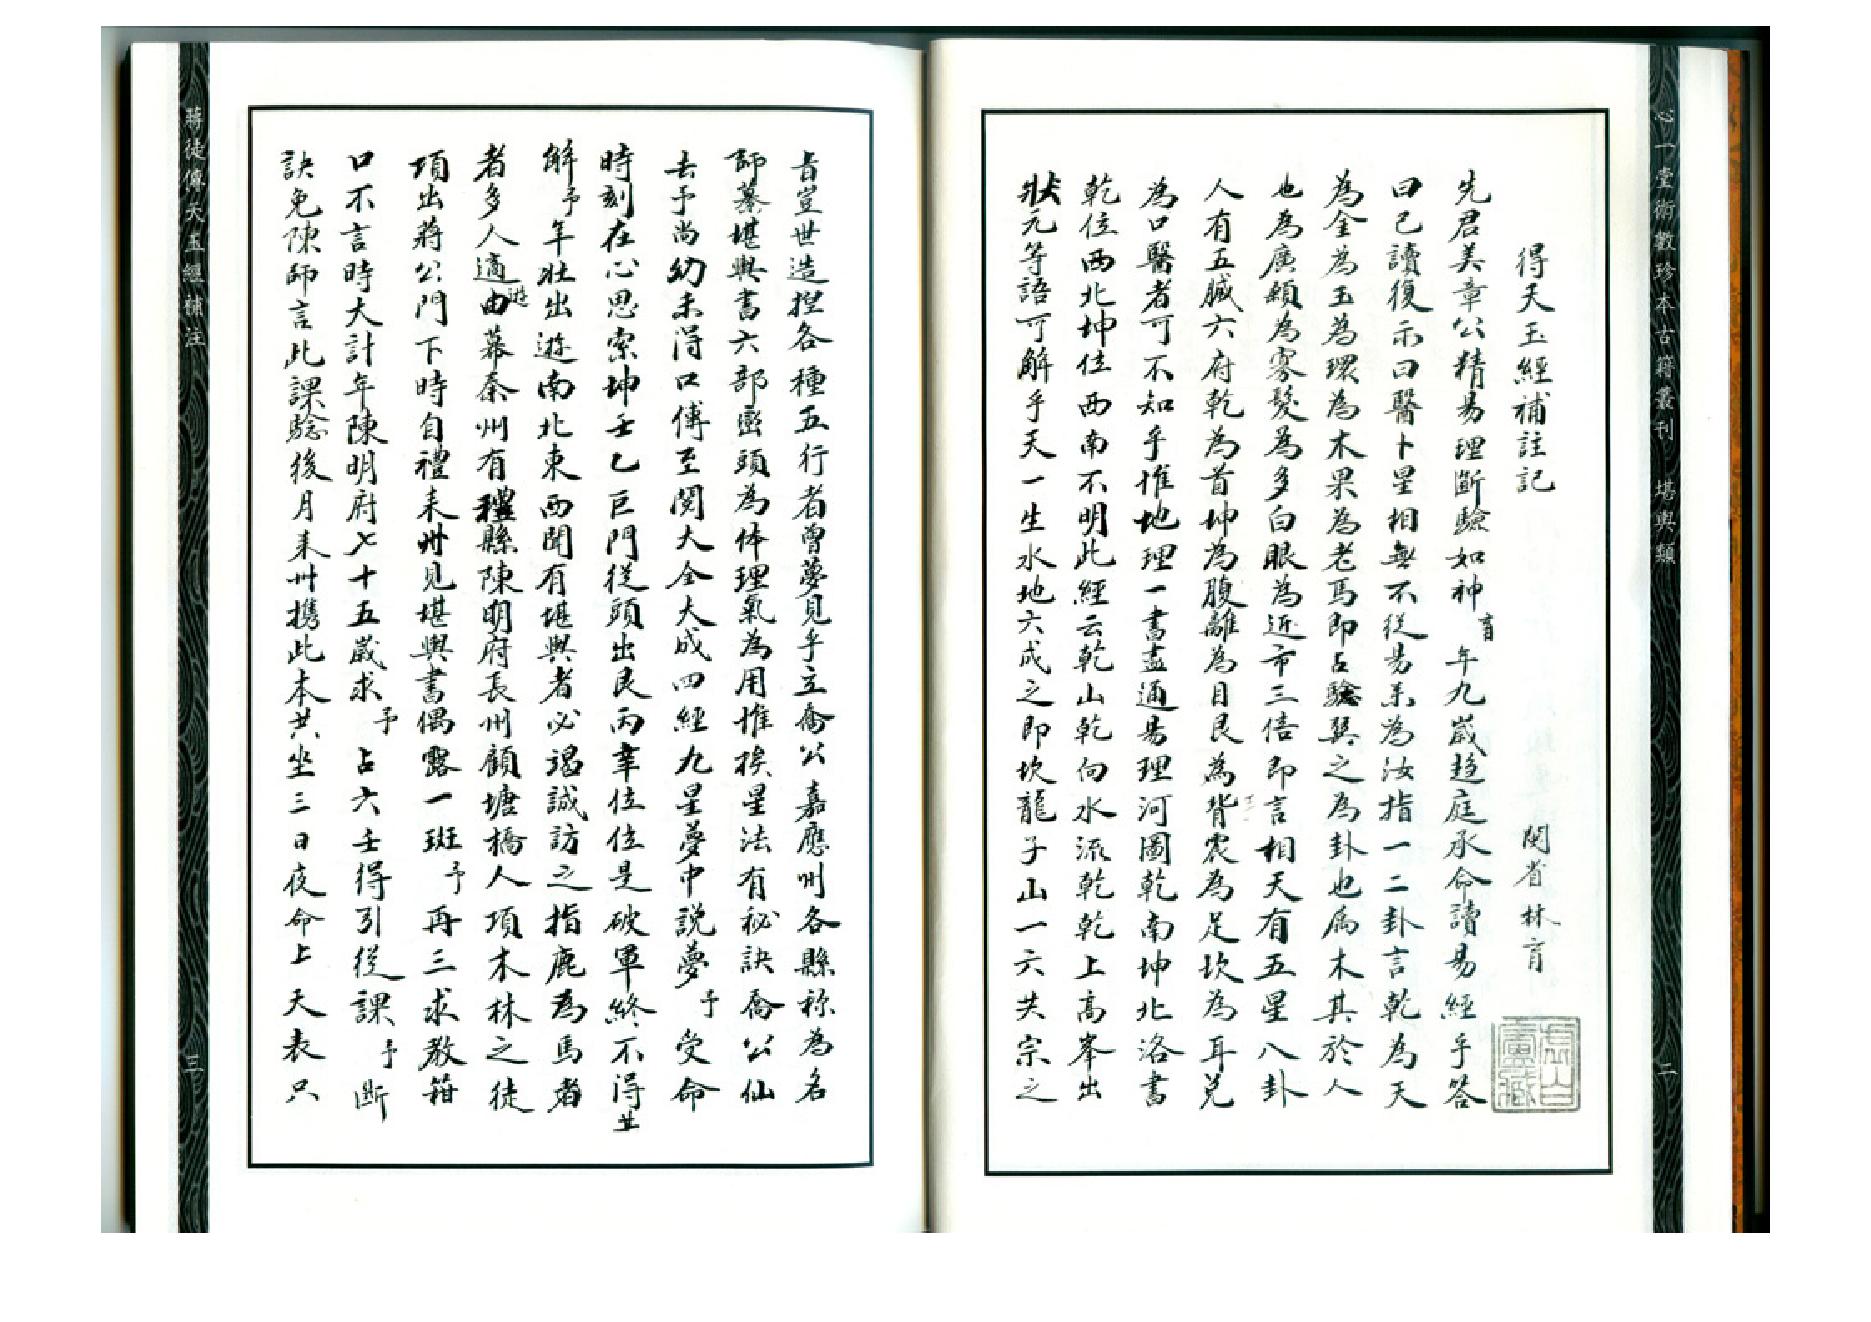 心一堂術數珍本古籍叢刊　堪輿類
二
得天玉經補註記　閩省林育
虛白廬藏
先君美章公精易理斷驗如神育年九歲趨庭承命讀易經乎答
曰已讀復示曰醫卜星相無不從易來為汝指一二卦言乾為天
為金為玉為環為木果為老馬即占驗巽之為卦也為木其於人
也為廣顙為寡髮為多白眼為近市三倍即言相天有五星八卦
人有五臟六府乾為首坤為腹離為目艮為背震為足坎為耳兌
為口醫者可不知乎惟地理一書盡通易理河圖乾南坤北洛書
乾位西北坤位西南不明此經云乾山乾向水流乾乾上高峯出
狀元等語可解乎天一生水地六成之即坎龍子山一六共宗之
旨豈世造捏各種五行者曾夢見乎立喬公嘉應州各縣称為名
師纂堪輿書六部巒頭為体理氣為用惟挨星法有秘訣喬公仙
去予尚幼未得口傳至閱大全大成四經九星夢中說夢予受命
時刻在心思索坤壬乙巨門從頭出艮丙辛位位是破軍終不得其
解予年壯出遊南北東西聞有堪輿者必竭誠訪之指鹿為馬者
者多人適由遊幕秦州有禮縣陳明府長州顧塘橋人項木林之徒
項出蔣公門下時自禮来州見堪輿書偶露一斑予再三求教箝
口不言時大計年陳明府七十五歲求予占六壬得引從課予斷
訣免陳師言此課驗後月来州携此本共坐三日夜命上天表只
蔣徒傳天玉經補注
三